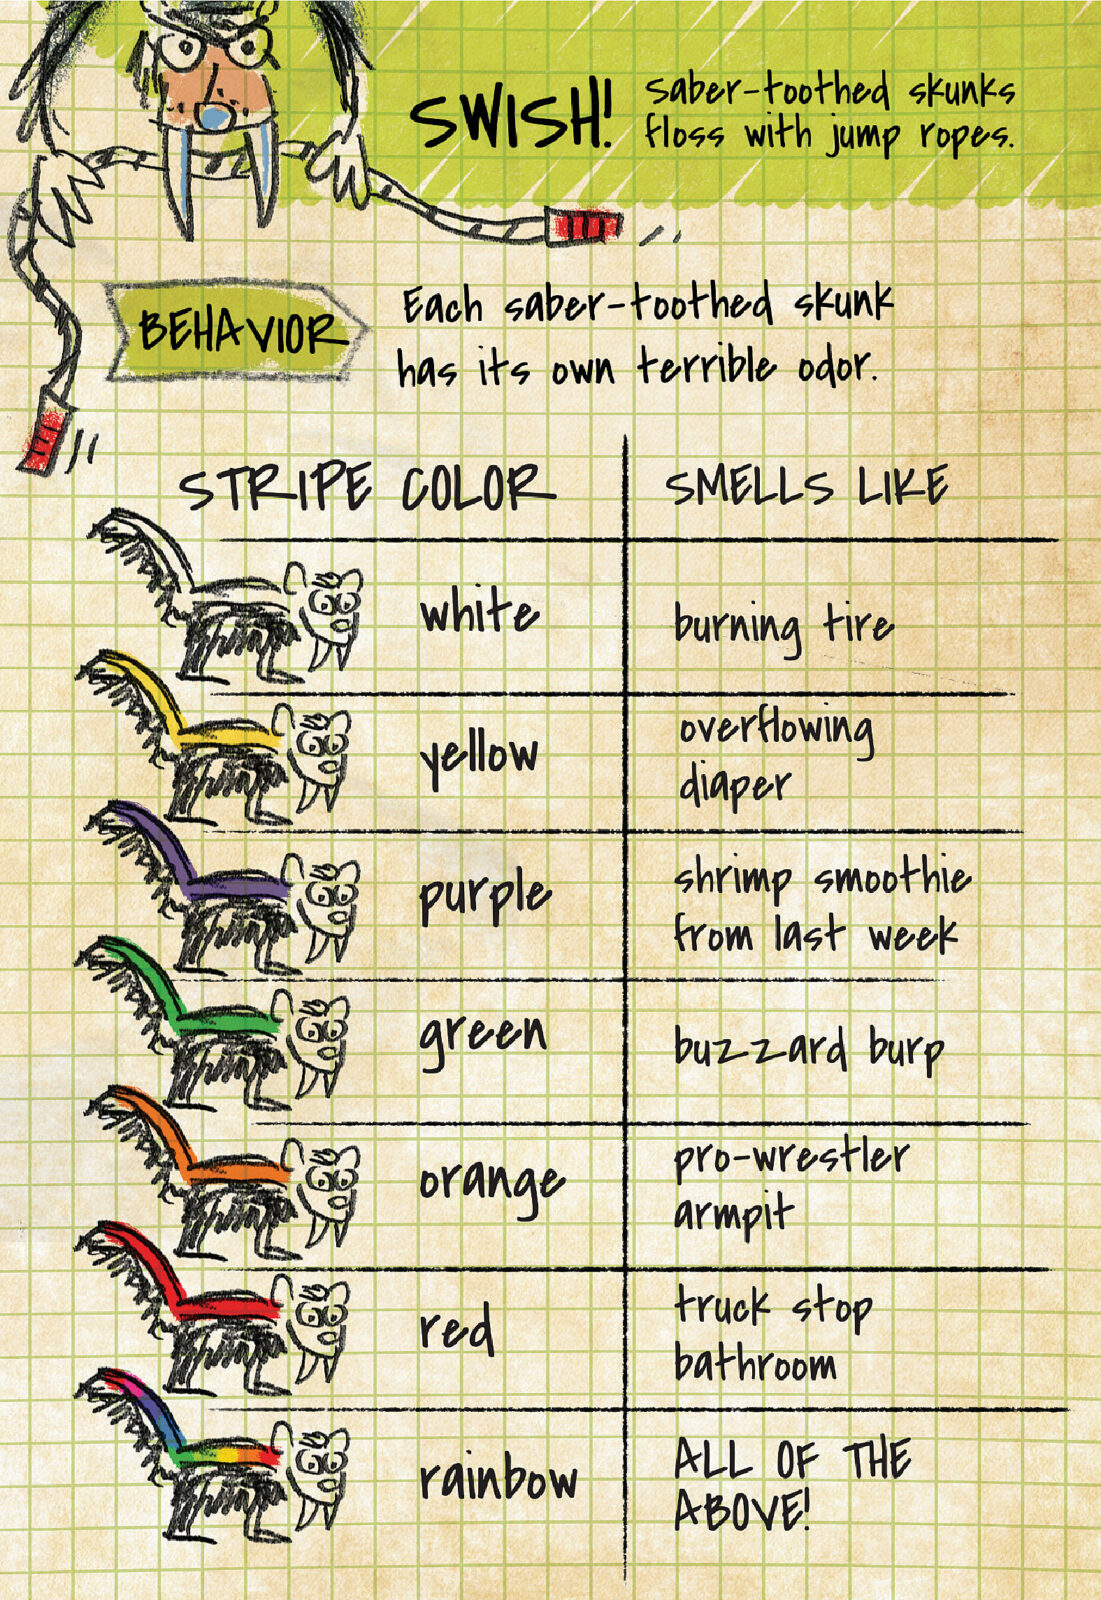 SWISH!
Saber-toothed skunks
floss with jump ropes.
BEHAVIOR
Each saber-toothed skunk
has its own terrible odor.
STRIPE COLOR
SMELLS LIKE
white
burning tire
yellow
overflowing
diaper
purple
shrimp smoothie
from last week
green
buzzard burp
orange
pro-wrestler
armpit
red
truck stop
bathroom
rainbow
ALL OF THE
ABOVE!